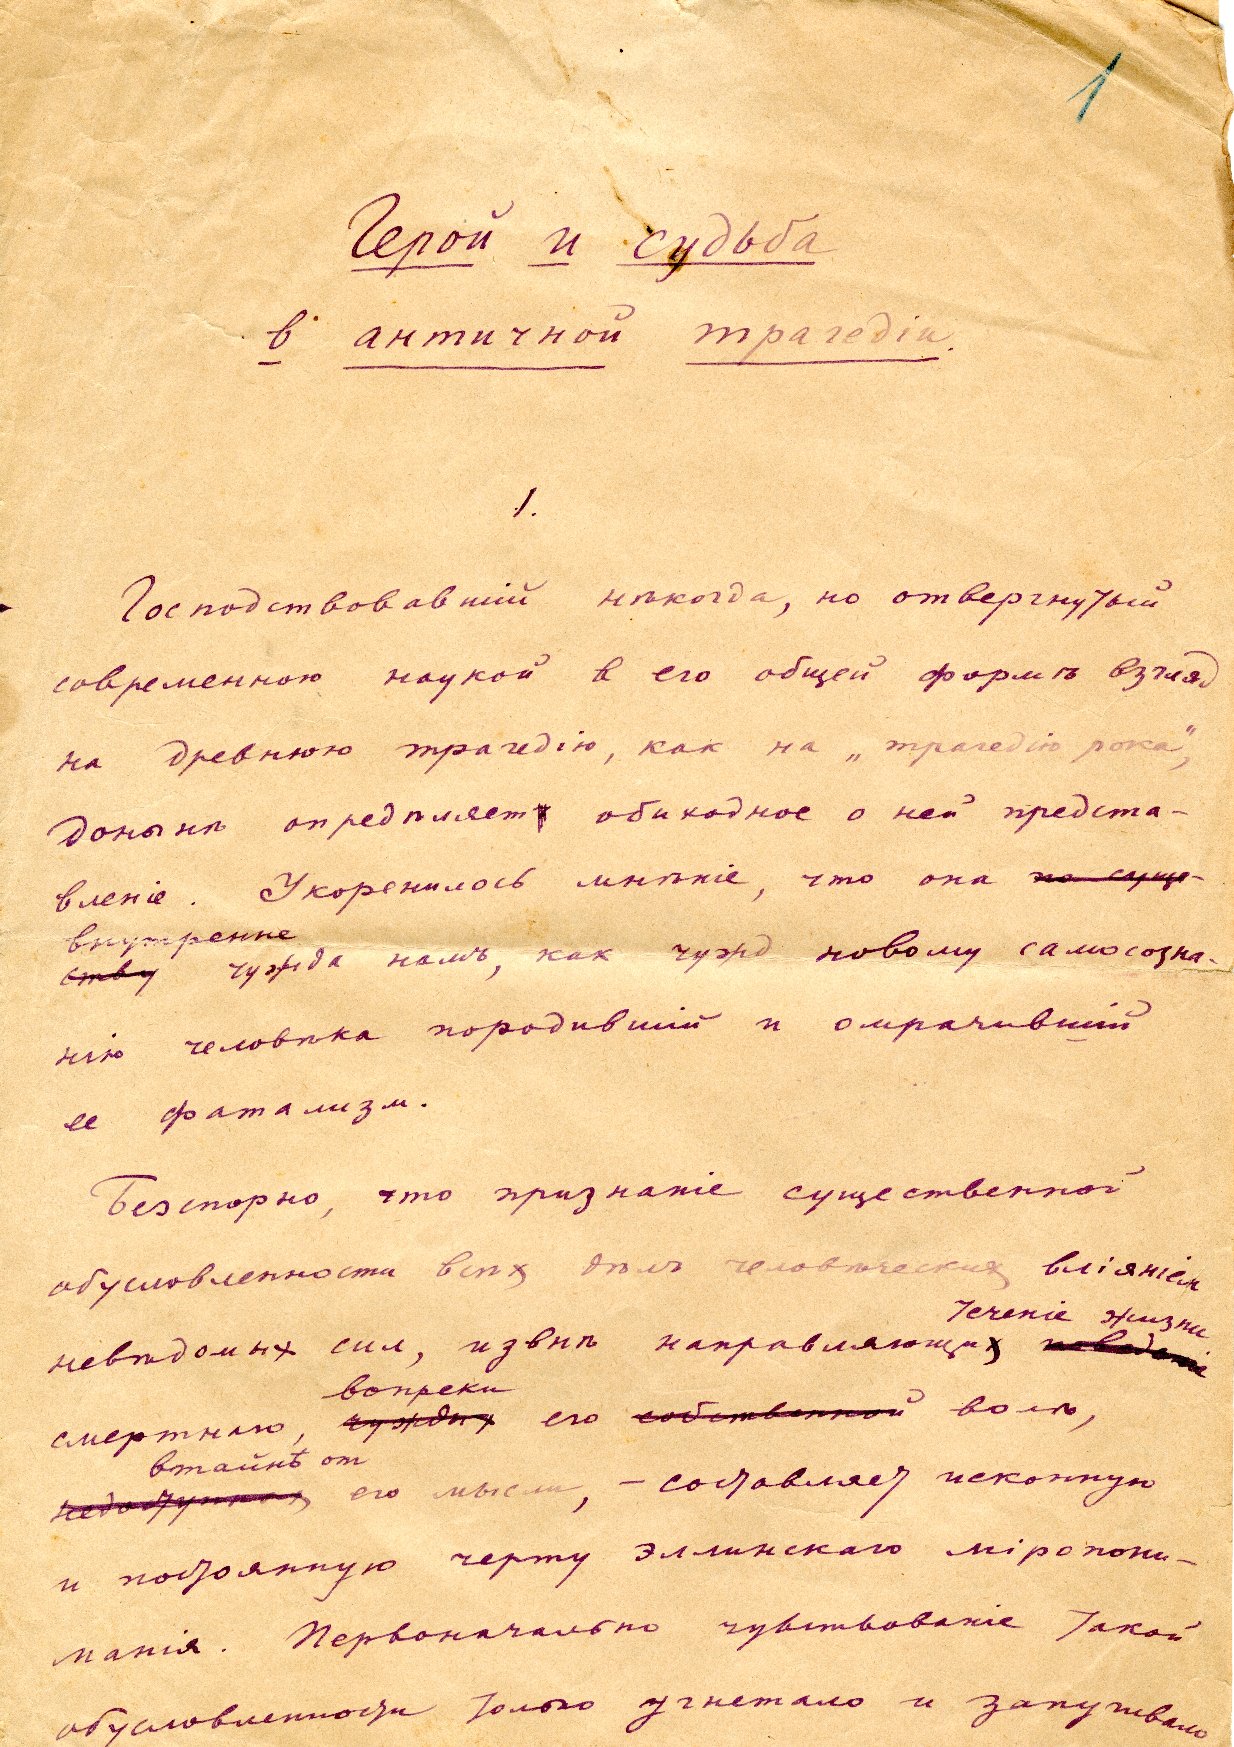 1
Герой и судьба
в античной трагедіи.
1.
Господствовавшій нѣкогда, но отвергнутый
современною наукой в его общей формѣ взгляд
на древнюю трагедію, как на „трагедію рока“,
донынѣ опредѣляет обиходное о ней предста-
вленіе. Укоренилось мнѣніе, что она по суще-
внутренне
ству чужда намъ, как чужд новому самосозна-
нію человѣка породившій и омрачившій
ее фатализм.
Безспорно, что признаніе существенной
обусловленности всѣх дѣлъ человѣческих вліяніем
теченіе жизни
невѣдомых сил, извнѣ направляющих поведеніе
вопреки
смертнаго, чуждых его собственной волѣ,
втайнѣ от
недоступных его мысли, – составляет исконную
и постоянную черту эллинскаго міропони-
манія. Первоначально чувствованіе такой
обусловленности только угнетало и запугивало